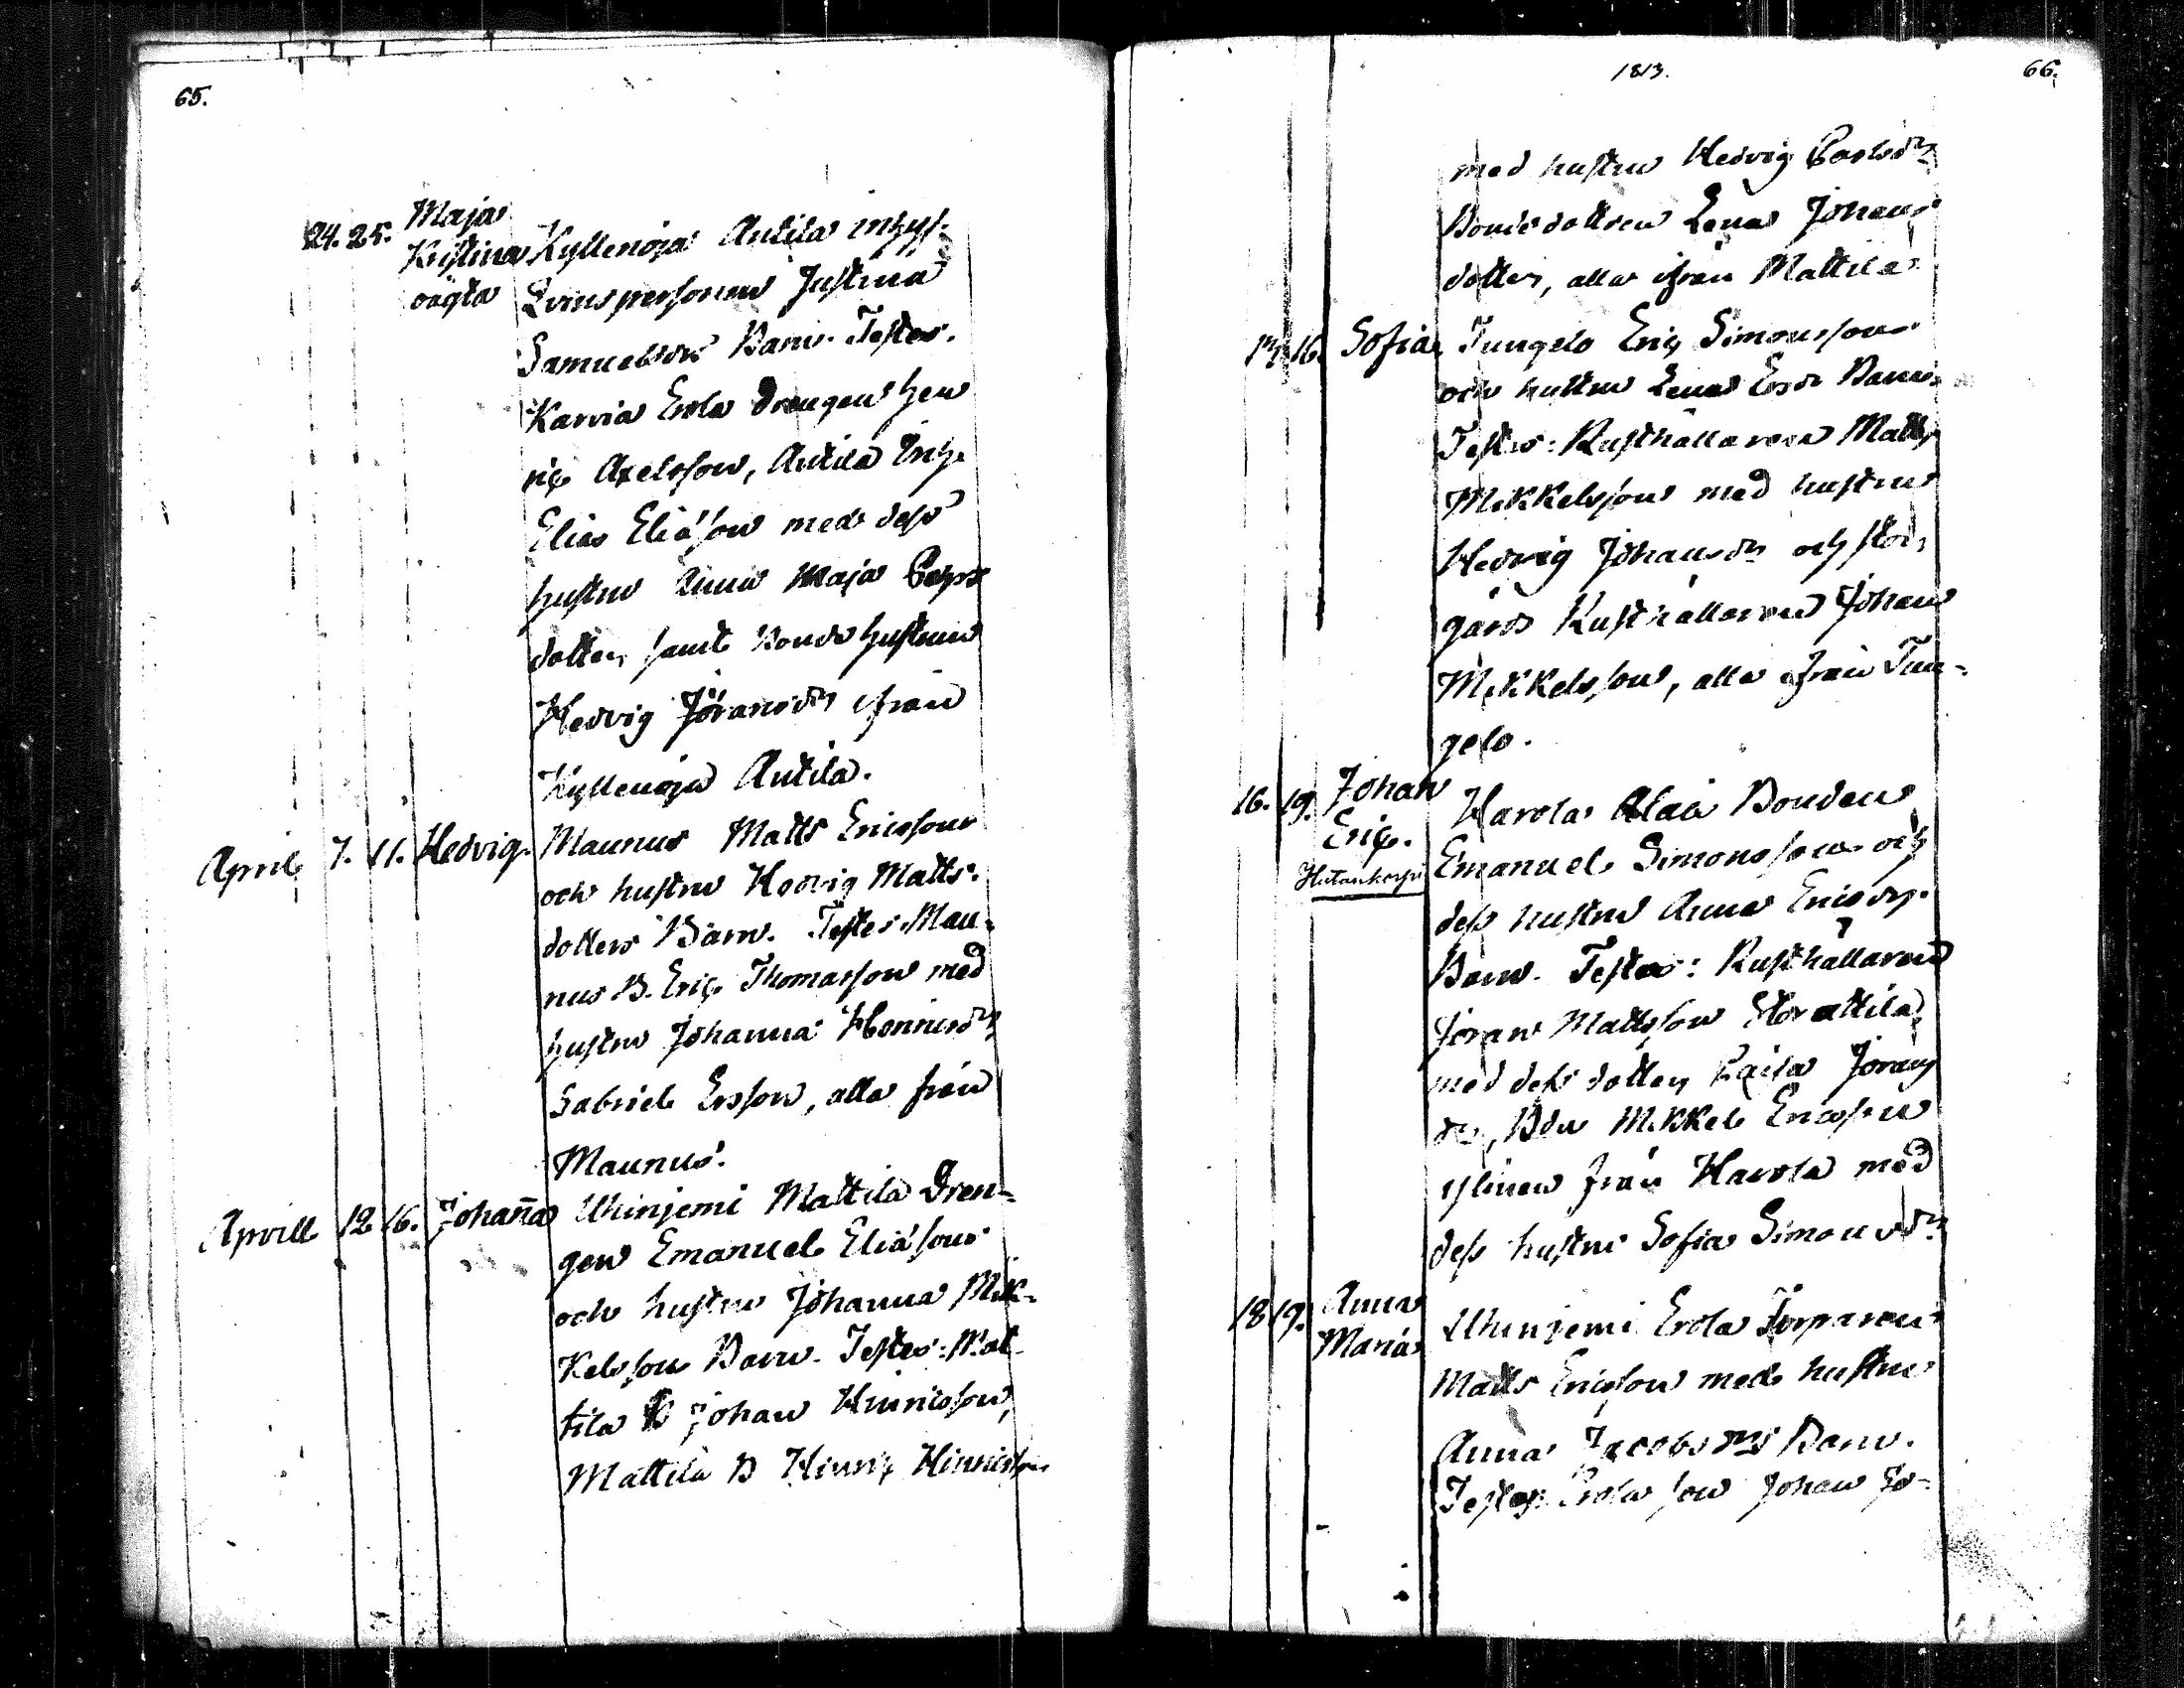 65.
24. 25. Maja
Kristina Kyllenoja Antila inhys.
oägta Qvinspersonen Justina
Samuelsdrs Barn. Testes.
Karvia Erola Drengen Hen
ric Axelsson, Antila Inh.
Elias Eliasson med dess
hustru Anna Maja
dotter, samt Bonde hustrun
Hedvig Göransdr ifrån
Kyllenoja Antila.
April 7. 11. Hedvig. Maunus Matts Ericsson
och hustru Hedvig Matts
dotters Barn. Testes Mau-
nus B. Eric Thomasson med
hustru Johanna Henricsdr
Gabriel Ersson, alla från
Maunus.
Aprill 12 16. Johana Uhinjemi Mattila Dren-
gen Emanuel Eliasson
och hustru Johanna Mik-
kelsson Barn. Testes: Mat-
tila B Johan Hinricsson,
Mattila B Hinric Hinricsson
1813. 66.
med hustru Hedvig Carlsdr
Bondedottren Lena Johans
dotter, alla ifrån Mattila
16. Sofia Tungelo Eric Simonsson
och hustru Lena Ersdr Barn.
Testes: Rusthållaren Matts
Mikkelsson med hustru
Hedvig Johansdr och Stor,
gårds Rusthållaren Johan
Mikkelsson, alla ifrån Tun-
gelo.
16. 19. Johan
Eric. Harola Alain Bonden
Hutankorpi Emanuel Simonsson och
dess hustru Anna Ericsdrs
Barn. Testes: Rusthållaren
Jöran Mattsson Storattila
med dess dotter Caisa Jörans
dr, Bdn Mikkel Ericsson
ylinen från Harola med
dess hustru Sofia Simonsdr
18 19. Anna
Maria Uhinjemi Erola Torparen
Matts Ericsson med hustru
Anna Jacobsdrs Barn.
Testes: Erola son Johan Jo-